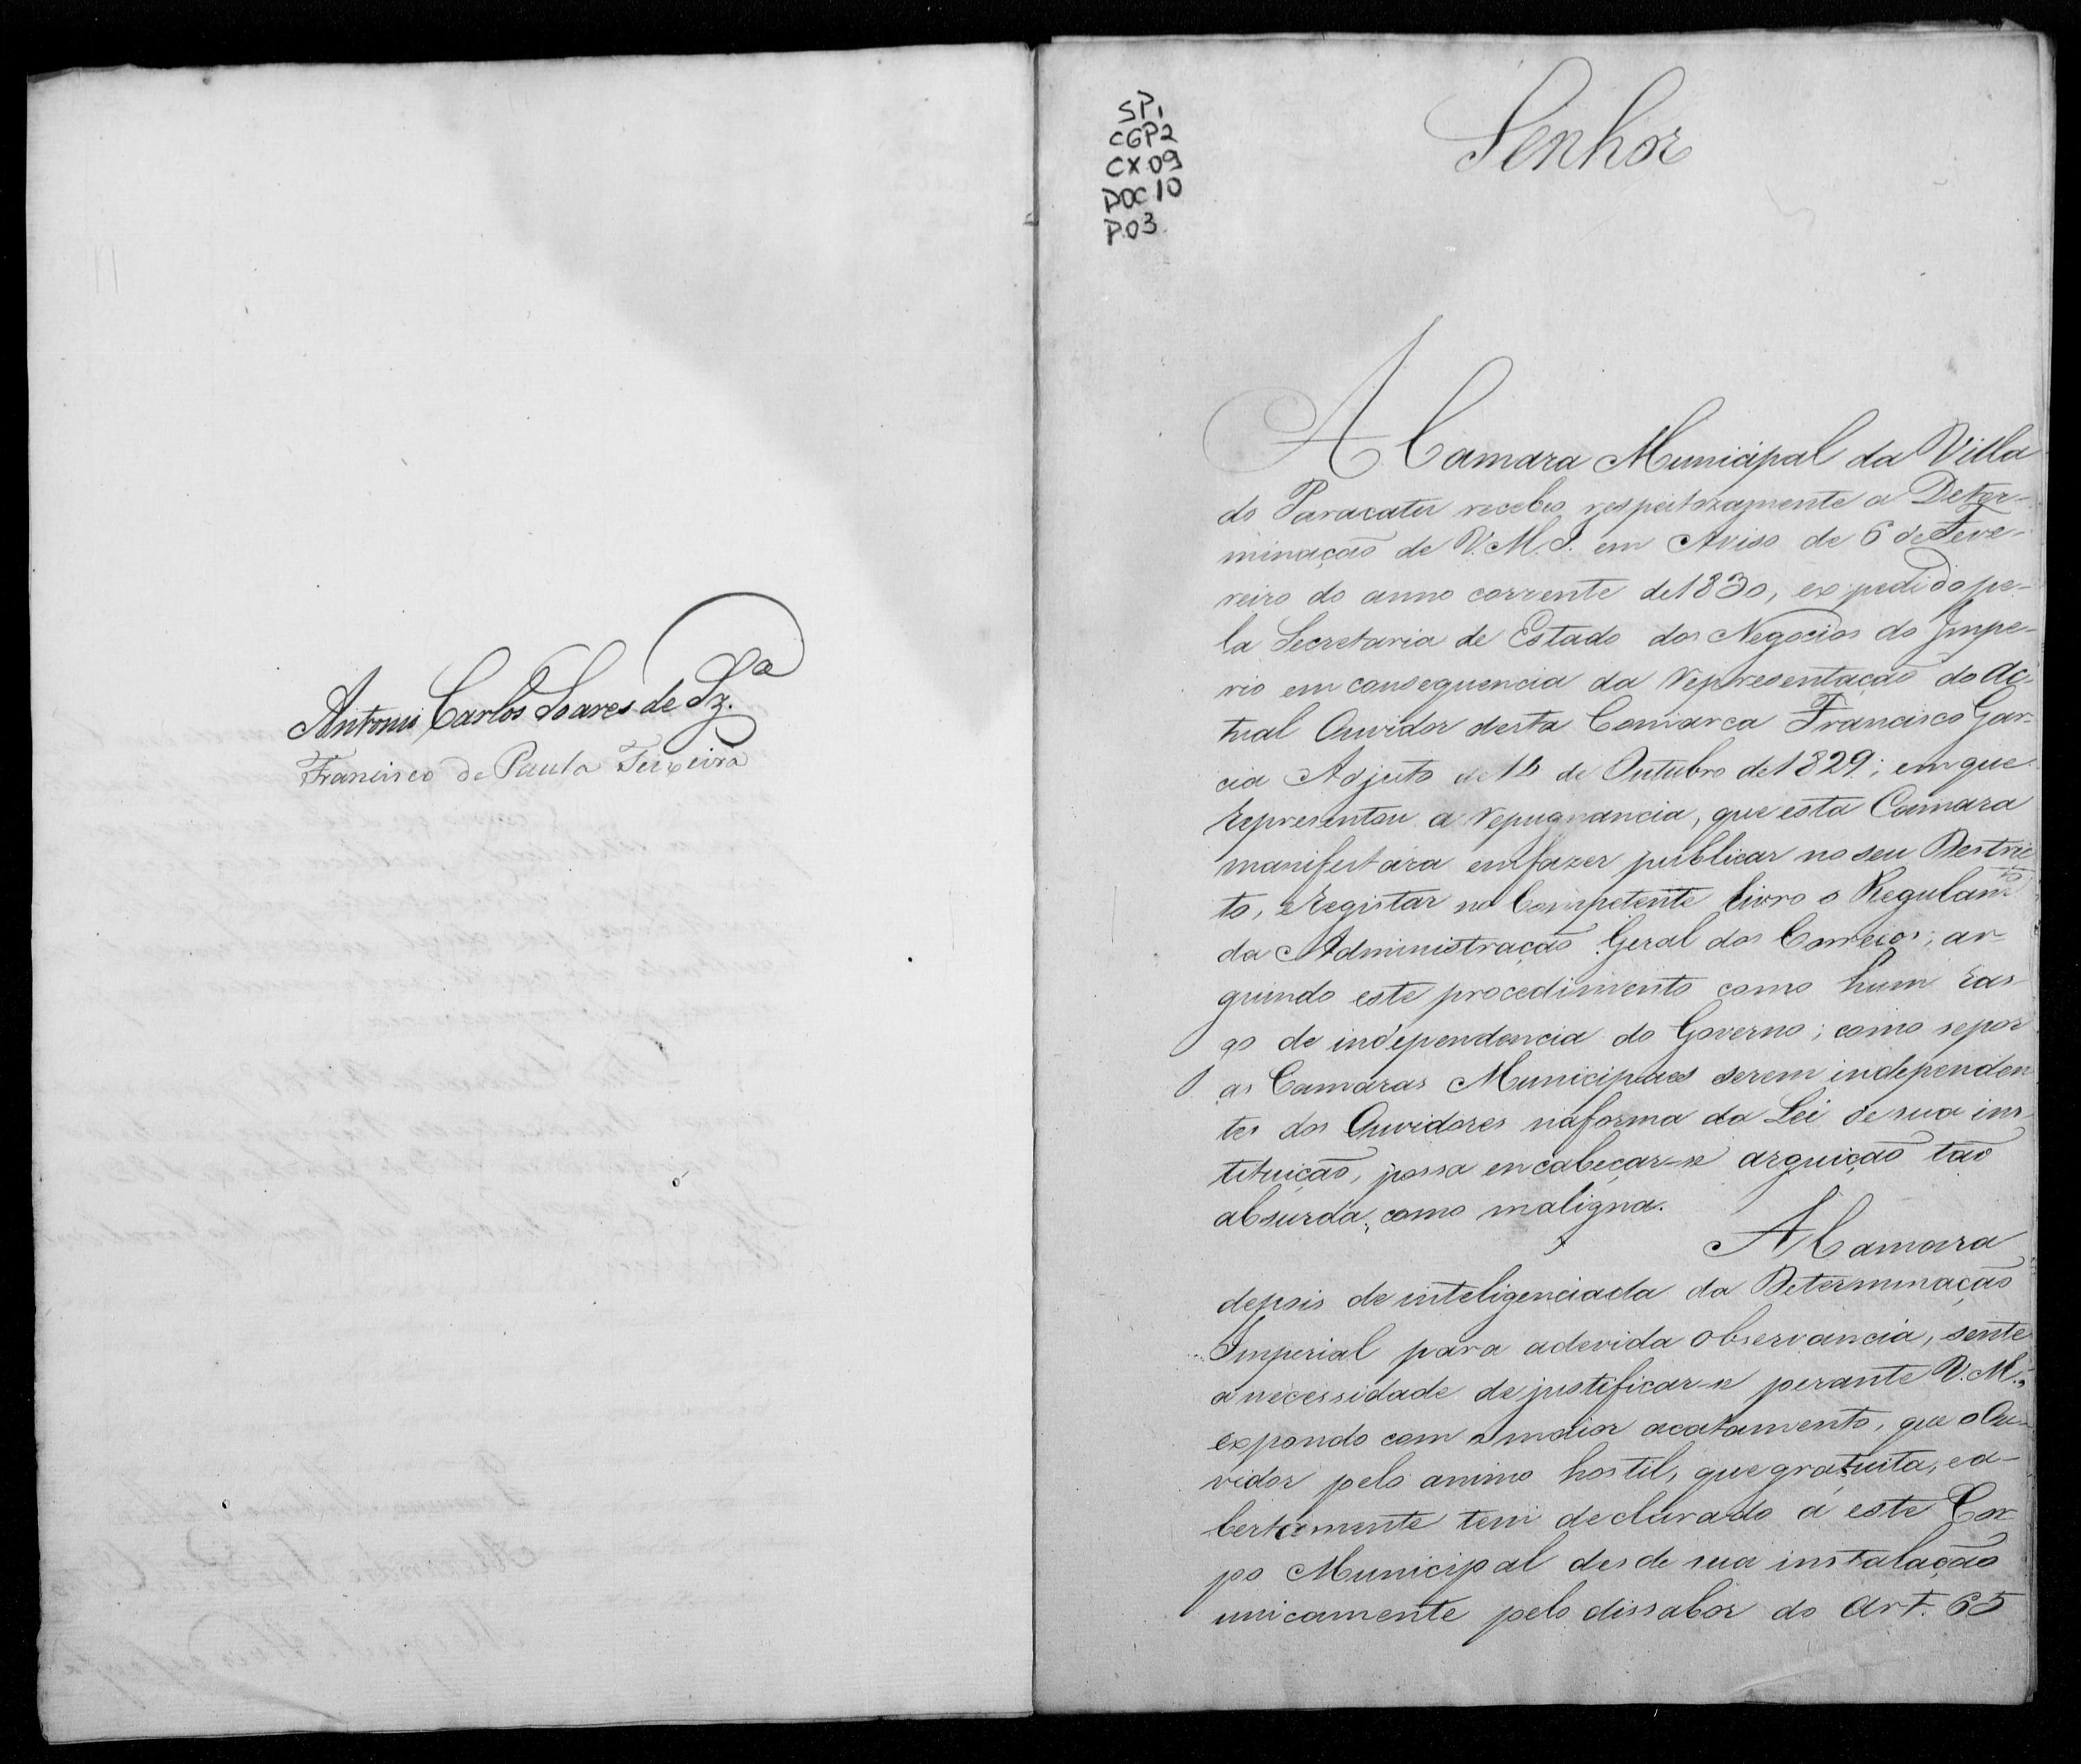 Antonio Carlos Soares de Sz.ª
Francisco de Paula Teixeira
SP1
CGP2
CX09
DOC10
P.03
Senhor
A Camara Municipal da Villa
do Paracatu recebeo respeitozamente a Deter-
minação de V.M.I. em Aviso de 6 de Feve-
reiro do anno corrente de 1830, expedido pe-
la Secretaria de Estado dos Negocios do Impe-
rio em consequencia da Representação do Ac-
tual Ouvidor desta Comarca Francisco Gar-
cia Adjuto de de Outubro de 1829; em que
representou a repugnancia, que esta Camara
manifestára em fazer publicar no seu Destric-
to, e registar no Competente Livro o Regulam.to
da Administração Geral dos Correios; ar-
guindo este procedimento como hum ras-
go de independencia do Governo; como se por
as Camaras Municipaes serem independen
tes dos Ouvidores na forma da Lei de sua ins-
tituição, possa encabeçar-se arguição tão
absurda, como maligna.
A Camara
depois de inteligenciada da Determinação
Imperial para a devida observancia, sente
a necessidade de justificar-se perante V.M.,
expondo com o maior acatamento, que o Ou-
vidor pelo animo hostil, que gratuita, e a-
bertamente tem declarado á este Cor-
po Municipal desde sua instalação
unicamente pelo dissabor do Art. 65